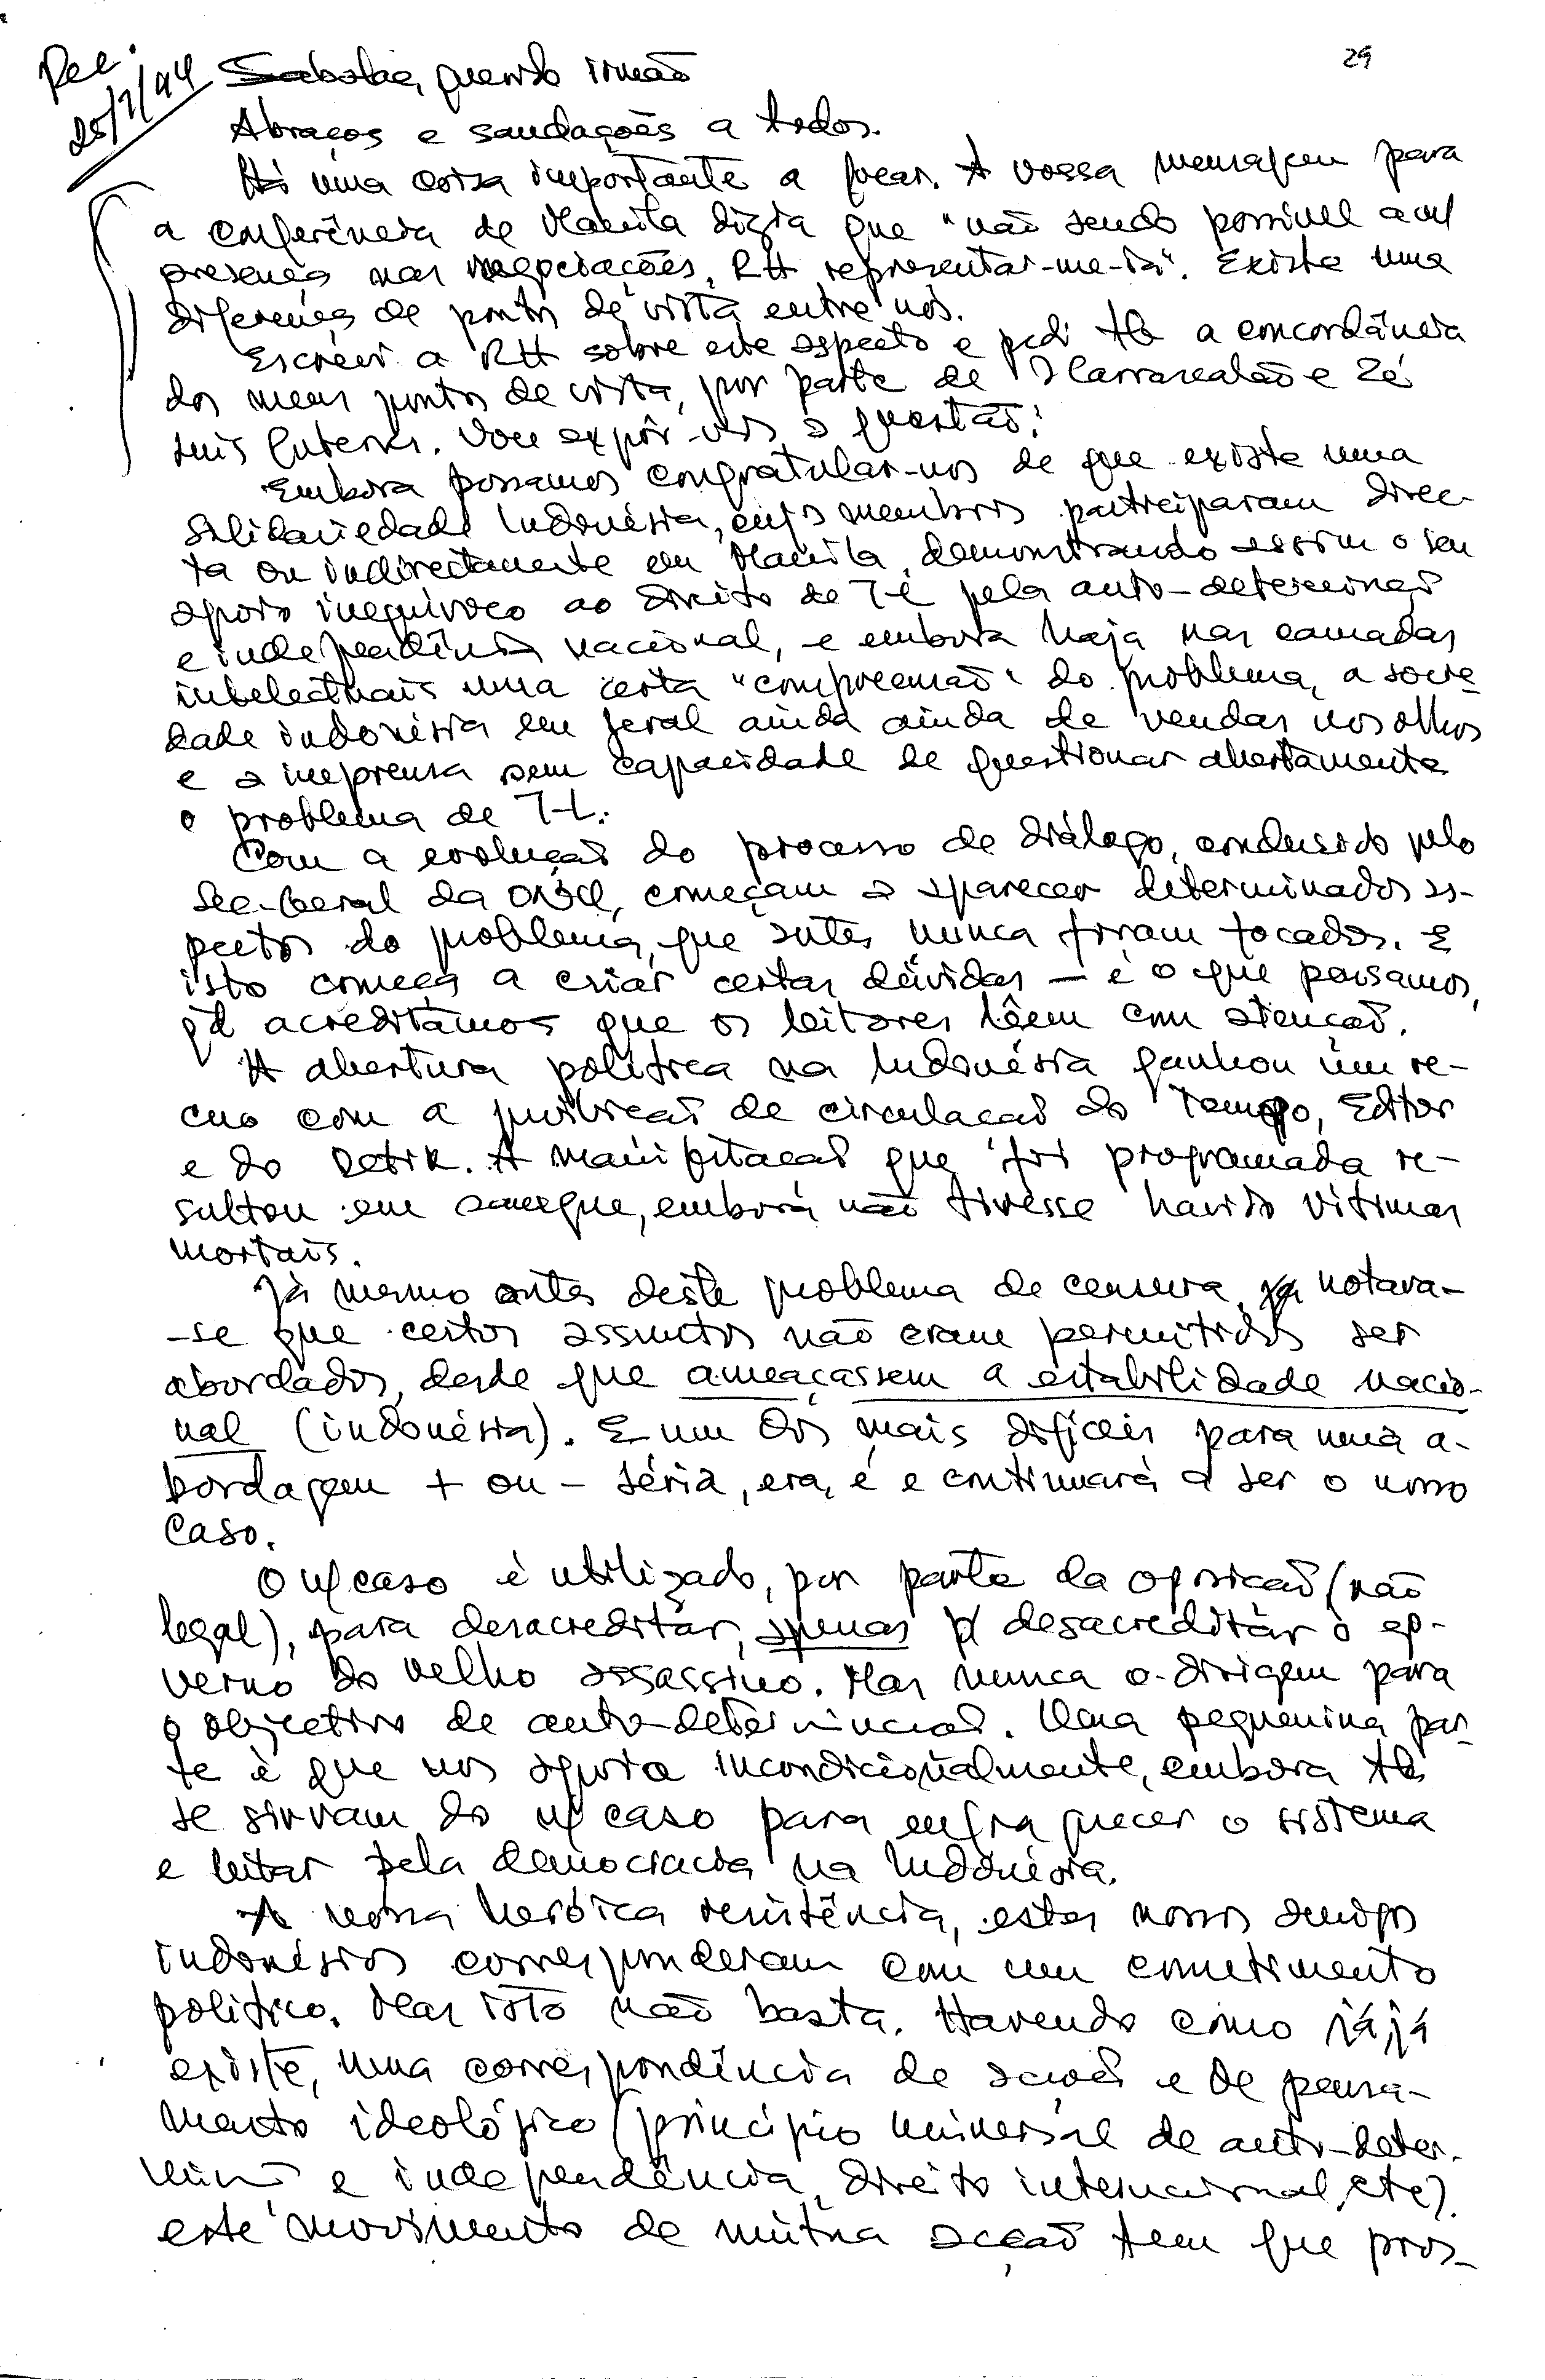 29
Rec.
25/7/94
Sabalae, querido irmão
Abraços e saudações a todos.
Há uma coisa importante a focar. A vossa mensagem para
a conferência de Manila dizia que "não sendo possível a m/
presença nas negociações, RH representar-me-ia". Existe uma
diferença de pontos de vista entre nós.
Escrevi a RH sobre este aspecto e pedi tb a concordância
dos meus pontos de vista, por parte de J Carrascalão e Zé
Luís Guterres. Vou expôr-vos a questão:
Embora possamos congratular-nos de que existe uma
solidariedade Indonésia, cujos membros participaram direc-
ta ou indirectamente em Manila, demonstrando assim o seu
apoio inequívoco ao direito de T-L pela auto-determinaç
e independência nacional, e embora haja nas camadas
intelectuais uma certa "compreensão" do problema, a socie-
dade indonésia em geral ainda ainda de vendas nos olhos
e a imprensa sem capacidade de questionar abertamente
o problema de T-L.
Com a evolução do processo de diálogo, conduzido pelo
Sec-Geral da ONU, começam a aparecer determinados as-
pectos do problema, que antes nunca foram focados. E
isto começa a criar certas dúvidas - é o que pensamos,
pq acreditamos que os leitores lêem com atenção.
A abertura política na Indonésia ganhou um re-
cuo com a proibição de circulação do Tempo, Editor
e do Detik. A manifestação que foi programada re-
sultou em sangue, embora não tivesse havido vítimas
mortais.
Já mesmo antes deste problema de censura, notava-
-se que certos assuntos não eram permitidos ser
abordados, desde que ameaçassem a estabilidade nacio-
nal (indonésia). E um dos mais difíceis para uma a-
bordagem + ou - séria, era, é e continuará a ser o nosso
caso.
O n/ caso é utilizado, por parte da oposição (não
legal), para desacreditar, apenas p/ desacreditar o go-
verno do velho assassino. Mas nunca o dirigem para
o objectivo de auto-determinação. Uma pequenina par-
te é que nos apoia incondicionalmente, embora tb
se sirvam do n/ caso para enfraquecer o sistema
e lutar pela democracia na Indonésia.
A nossa heróica resistência, estes nossos amigos
indonésios corresponderam com um cometimento
político. Mas isto não basta. Havendo como já, já
existe, uma correspondência de acções e de pensa-
mento ideológico (princípio universal de auto-deter-
min e independência, direito internacional, etc).
este movimento de mútua acção tem que pros-